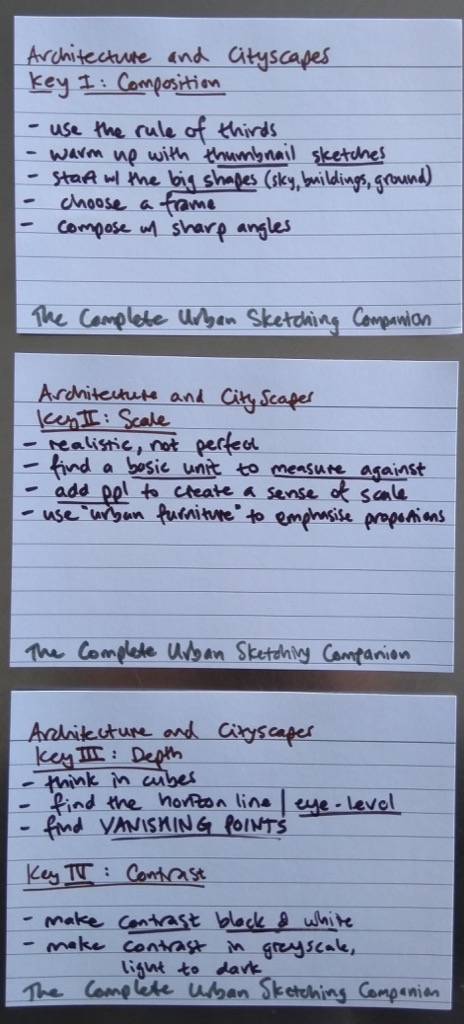 Architecture and Cityscapes
Key I: Composition
- use the rule of thirds
- warm up with thumbnail sketches
- start w/ the big shapes (sky, buildings, ground)
- choose a frame
- compose w/ sharp angles
The Complete Urban Sketching Companion
Architecture and CityScapes
Key II: Scale
- realistic, not perfect
- find a basic unit to measure against
- add ppl to create a sense of scale
- use "urban furniture" to emphasise proportions
The Complete Urban Sketching Companion
Architecture and Cityscapes
Key III: Depth
- think in cubes
- find the horizon line / eye-level
- find VANISHING POINTS
Key IV: Contrast
- make contrast black & white
- make contrast in greyscale,
light to dark
The Complete Urban Sketching Companion